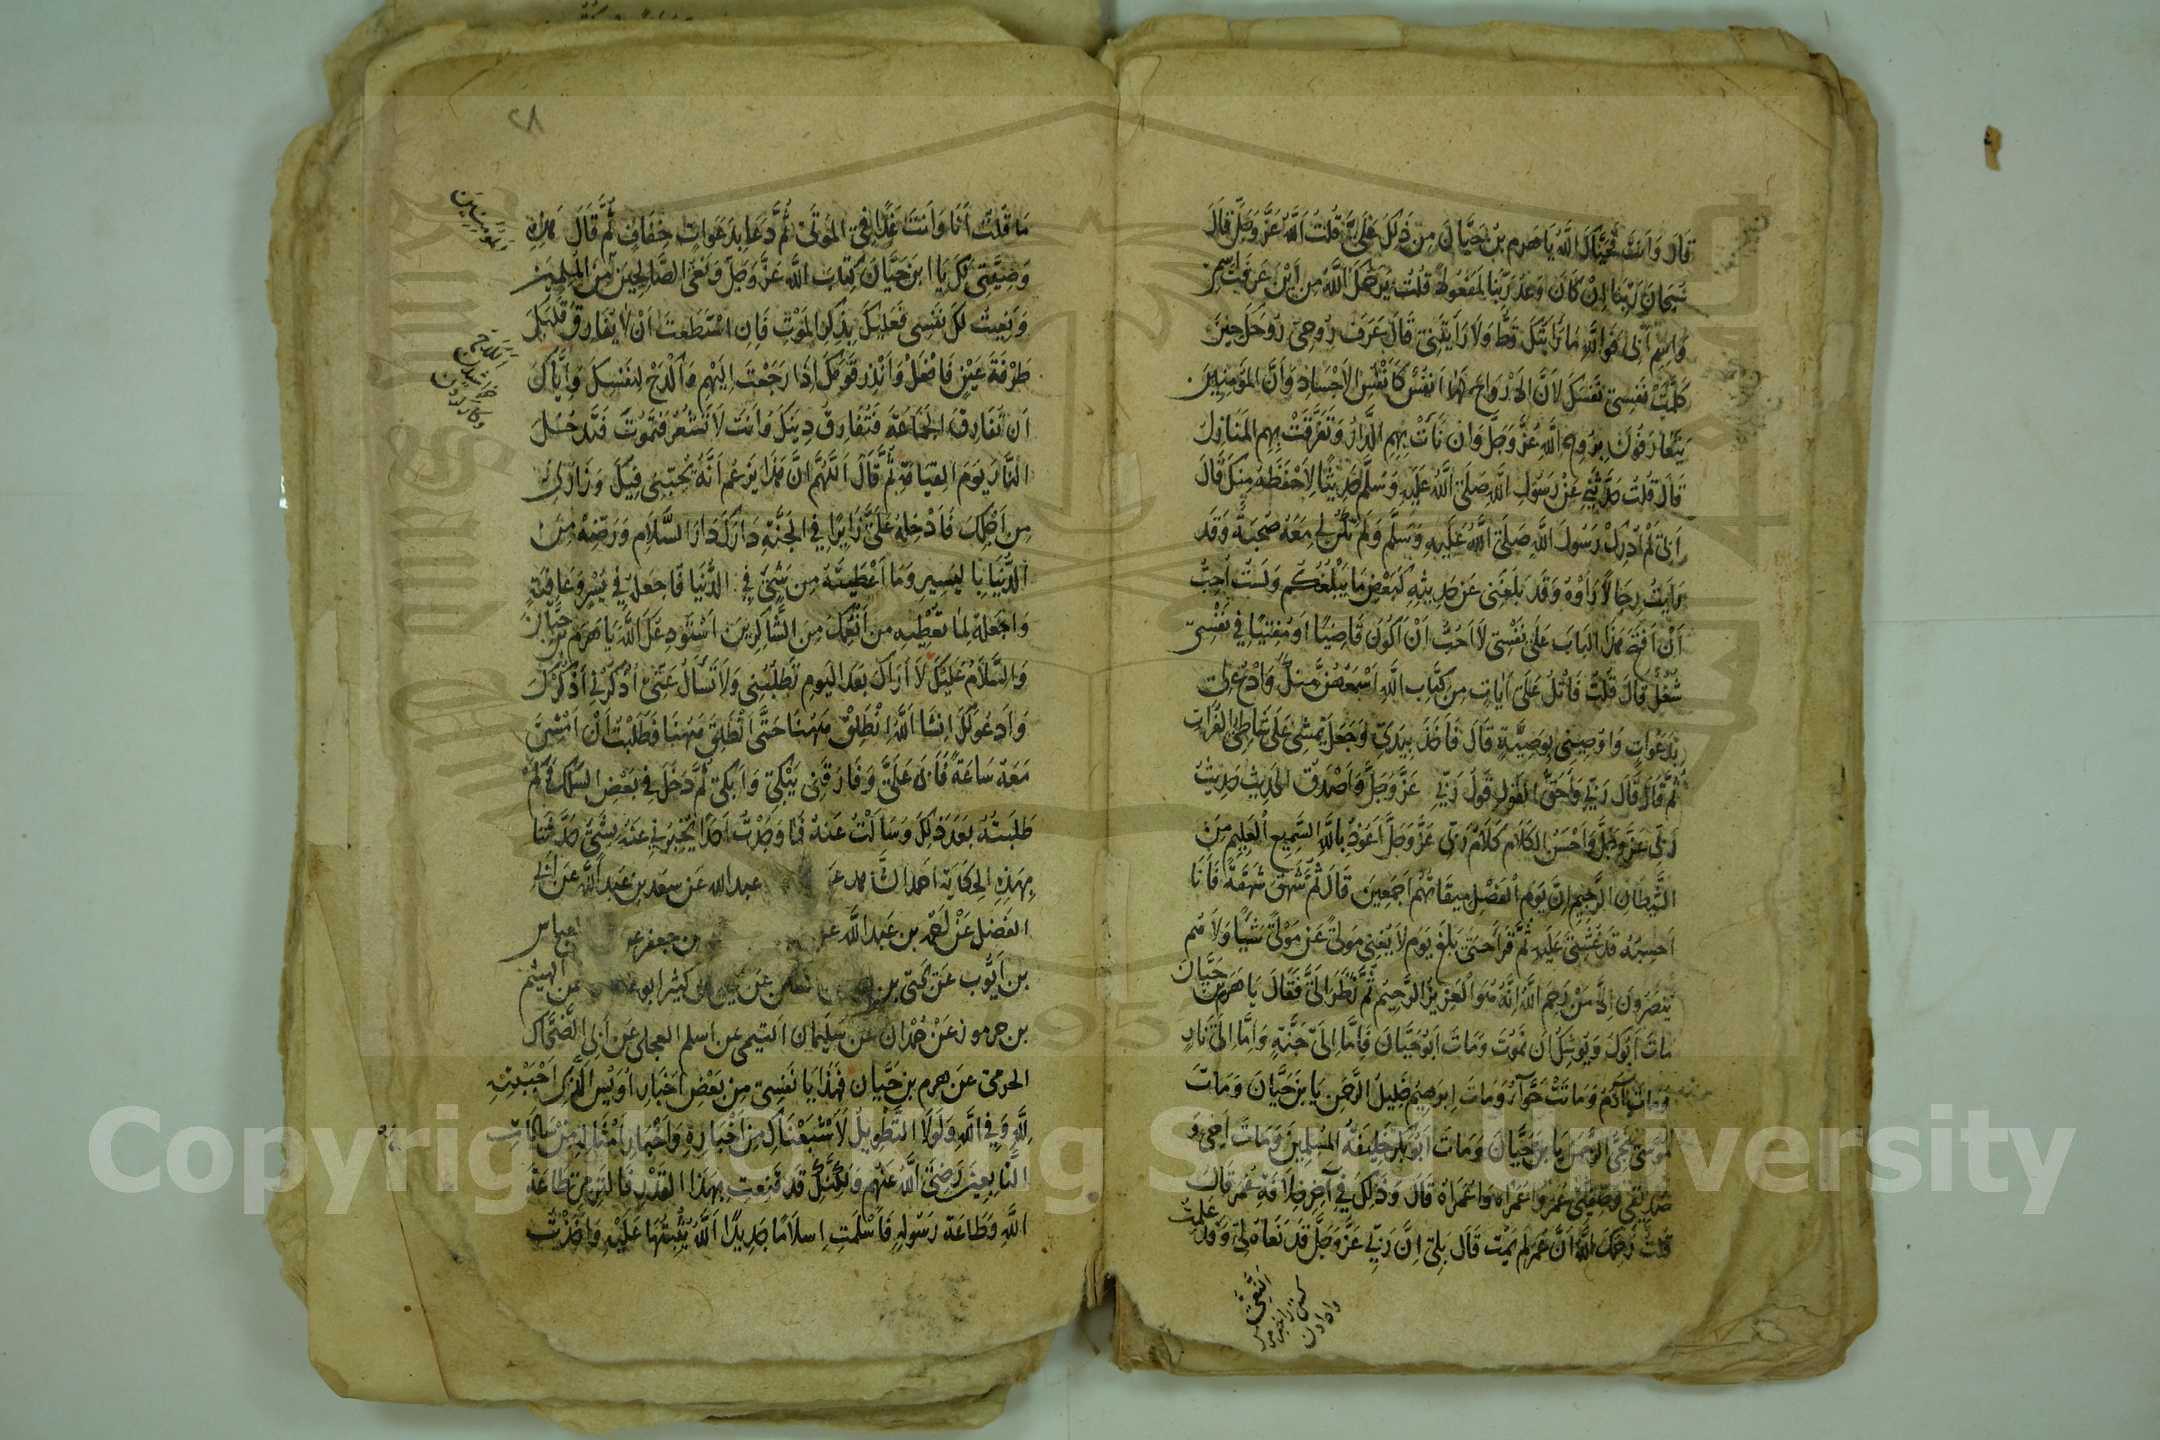 قَالَ وَاَنْتَ حَيَّاكَ اللّٰهُ يَا هَرِمَ بْنَ حَيَّانَ مَنْ دَلَّكَ عَلَيَّ قُلْتُ اَللّٰهُ عَزَّ وَجَلَّ قَالَ
سُبْحَانَ رَبِّنَا اِنْ كَانَ وَعْدُ رَبِّنَا لَمَفْعُولًا قُلْتُ يَرْحَمُكَ اللّٰهُ مِنْ اَيْنَ عَرَفْتَ اسْمِي
وَاسْمَ اَبِي فَوَاللّٰهِ مَا رَاَيْتُكَ قَطُّ وَلَا رَاَيْتَنِي قَالَ عَرَفَ رُوحِي رُوحَكَ حِينَ
كَلَّمَتْ نَفْسِي نَفْسَكَ لِاَنَّ الْاَرْوَاحَ لَهَا اَنْفُسٌ كَاَنْفُسِ الْاَجْسَادِ وَاَنَّ الْمُؤْمِنِينَ
يَتَعَارَفُونَ بِرُوحِ اللّٰهِ عَزَّ وَجَلَّ وَاِنْ نَاَتْ بِهِمُ الدَّارُ وَتَفَرَّقَتْ بِهِمُ الْمَنَازِلُ
قَالَ قُلْتُ حَدِّثْنِي عَنْ رَسُولِ اللّٰهِ صَلَّى اللّٰهُ عَلَيْهِ وَسَلَّمَ حَدِيثًا لِاَحْفَظَهُ مِنْكَ قَالَ
اِنِّي لَمْ اُدْرِكْ رَسُولَ اللّٰهِ صَلَّى اللّٰهُ عَلَيْهِ وَسَلَّمَ وَلَمْ تَكُنْ لِي مَعَهُ صُحْبَةٌ وَقَدْ
رَاَيْتُ رِجَالًا رَاَوْهُ وَقَدْ بَلَغَنِي عَنْ حَدِيثِهِ كَبَعْضِ مَا يَبْلُغُكُمْ وَلَسْتُ اُحِبُّ
اَنْ اَفْتَحَ هٰذَا الْبَابَ عَلَى نَفْسِي لَا اُحِبُّ اَنْ اَكُونَ قَاضِيًا اَوْ مُفْتِيًا فِي نَفْسِي
شُغْلٌ قَالَ قُلْتُ فَاتْلُ عَلَيَّ اٰيَاتٍ مِنْ كِتَابِ اللّٰهِ اَسْمَعُهُنَّ مِنْكَ وَادْعُ لِي
بِدَعَوَاتٍ وَاَوْصِنِي بِوَصِيَّةٍ قَالَ فَاَخَذَ بِيَدِي وَجَعَلَ يَمْشِي عَلَى شَاطِئِ الْفُرَاتِ
ثُمَّ قَالَ قَالَ رَبِّي وَاَحَقُّ الْقَوْلِ قَوْلُ رَبِّي عَزَّ وَجَلَّ وَاَصْدَقُ الْحَدِيثِ حَدِيثُ
رَبِّي عَزَّ وَجَلَّ وَاَحْسَنُ الْكَلَامِ كَلَامُ رَبِّي عَزَّ وَجَلَّ اَعُوذُ بِاللّٰهِ السَّمِيعِ الْعَلِيمِ مِنَ
الشَّيْطَانِ الرَّجِيمِ اِنَّ يَوْمَ الْفَصْلِ مِيقَاتُهُمْ اَجْمَعِينَ قَالَ ثُمَّ شَهَقَ شَهْقَةً فَاَنَا
اَحْسِبُهُ قَدْ غُشِيَ عَلَيْهِ ثُمَّ قَرَاَ حَتَّى بَلَغَ يَوْمَ لَا يُغْنِي مَوْلًى عَنْ مَوْلًى شَيْئًا وَلَا هُمْ
يُنْصَرُونَ اِلَّا مَنْ رَحِمَ اللّٰهُ اِنَّهُ هُوَ الْعَزِيزُ الرَّحِيمُ ثُمَّ نَظَرَ اِلَيَّ فَقَالَ يَا هَرِمَ بْنَ حَيَّانَ
مَاتَ اَبُوكَ وَيُوشِكُ اَنْ تَمُوتَ وَمَاتَ اَبُو حَيَّانَ فَاِمَّا اِلَى جَنَّةٍ وَاِمَّا اِلَى نَارٍ
وَمَاتَ اٰدَمُ وَمَاتَتْ حَوَّاءُ وَمَاتَ اِبْرٰهِيمُ خَلِيلُ الرَّحْمٰنِ يَا بْنَ حَيَّانَ وَمَاتَ
مُوسَى نَجِيُّ الرَّحْمٰنِ يَا بْنَ حَيَّانَ وَمَاتَ اَبُو بَكْرٍ خَلِيفَةُ الْمُسْلِمِينَ وَمَاتَ اَخِي وَ
صَدِيقِي وَصَفِيِّي عُمَرُ وَاعُمَرَاهُ وَاعُمَرَاهُ قَالَ وَذٰلِكَ فِي اٰخِرِ خِلَافَةِ عُمَرَ قَالَ
قُلْتُ رَحِمَكَ اللّٰهُ اِنَّ عُمَرَ لَمْ يَمُتْ قَالَ بَلَى اِنَّ رَبِّي عَزَّ وَجَلَّ قَدْ نَعَاهُ لِي وَقَدْ عَلِمْتُ
٢٨
مَا قُلْتُ اَنَا وَاَنْتَ غَدًا فِي الْمَوْتَى ثُمَّ دَعَا بِدَعَوَاتٍ خِفَافٍ ثُمَّ قَالَ هٰذِهِ
وَصِيَّتِي لَكَ يَا ابْنَ حَيَّانَ كِتَابَ اللّٰهِ عَزَّ وَجَلَّ وَنَعْيَ الصَّالِحِينَ مِنَ الْمُسْلِمِينَ
وَنَعَيْتُ لَكَ نَفْسِي فَعَلَيْكَ بِذِكْرِ الْمَوْتِ فَاِنِ اسْتَطَعْتَ اَنْ لَا يُفَارِقَ قَلْبَكَ
طَرْفَةَ عَيْنٍ فَافْعَلْ وَاَنْذِرْ قَوْمَكَ اِذَا رَجَعْتَ اِلَيْهِمْ وَاكْدَحْ لِنَفْسِكَ وَاِيَّاكَ
اَنْ تُفَارِقَ الْجَمَاعَةَ فَتُفَارِقَ دِينَكَ وَاَنْتَ لَا تَشْعُرُ فَتَمُوتَ فَتَدْخُلَ
النَّارَ يَوْمَ الْقِيَامَةِ ثُمَّ قَالَ اَللّٰهُمَّ اِنَّ هٰذَا يَزْعُمُ اَنَّهُ يُحِبُّنِي فِيكَ وَزَارَنِي
مِنْ اَجْلِكَ فَاَدْخِلْهُ عَلَيَّ زَائِرًا فِي الْجَنَّةِ دَارِكَ دَارِ السَّلَامِ وَرَضِّهِ مِنَ
الدُّنْيَا بِالْيَسِيرِ وَمَا اَعْطَيْتَهُ مِنْ شَيْءٍ فِي الدُّنْيَا فَاجْعَلْهُ فِي يُسْرٍ وَعَافِيَةٍ
وَاجْعَلْهُ لِمَا تُعْطِيهِ مِنْ اَنْعُمِكَ مِنَ الشَّاكِرِينَ اَسْتَوْدِعُكَ اللّٰهَ يَا هَرِمَ بْنَ حَيَّانَ
وَالسَّلَامُ عَلَيْكَ لَا اَرَاكَ بَعْدَ الْيَوْمِ تَطْلُبُنِي وَلَا تَسْاَلُ عَنِّي اُذْكُرْنِي اَذْكُرْكَ
وَاَدْعُو لَكَ اِنْشَا اللّٰهُ اِنْطَلِقْ هٰهُنَا حَتَّى اَنْطَلِقَ هٰهُنَا فَطَلَبْتُ اَنْ اَمْشِيَ
مَعَهُ سَاعَةً فَاَبَى عَلَيَّ وَفَارَقَنِي يَبْكِي وَاَبْكِي ثُمَّ دَخَلَ فِي بَعْضِ السِّكَكِ فَكَمْ
طَلَبْتُهُ بَعْدَ ذٰلِكَ وَسَاَلْتُ عَنْهُ فَمَا وَجَدْتُ اَحَدًا يُخْبِرُنِي عَنْهُ بِشَيْءٍ حَدَّثَنَا
بِهٰذِهِ الْحِكَايَةِ عبدالله عَنْ سعد بْنِ عَبْدِ اللّٰهِ عَنْ
الفضل عَنْ احمد بن عبد اللّٰه بن جعفر عباس
بن اَيُّوب عَنْ يحيى بن كثير ابو عن الهيثم
بن جرموز عَنْ حُمْدان عن سليمان التيمى عن اسلم العجلى عن اَبِي الضَّحَّاك
الجرمى عن هرم بن حَيَّان فَهٰذَا يَا نَفْسِي مِنْ بَعْضِ اَخْبَارِ اُوَيْسٍ الَّذِي اَحْبَبْتِهِ
لِلّٰهِ وَفِي اللّٰهِ وَلَوْلَا التَّطْوِيلُ لَاَشْبَعْنَاكِ مِنْ اَخْبَارِهِ وَاَخْبَارِ اَمْثَالِهِ مِنْ سَادَاتِ
التَّابِعِينَ رَضِيَ اللّٰهُ عَنْهُمْ وَلٰكِنَّكِ قَدْ قَنِعْتِ بِهٰذَا الْقَدْرِ
اللّٰهِ وَطَاعَةِ رَسُولِهِ فَاَسْلَمَتْ اِسْلَامًا جَدِيدًا اَللّٰهُ يُثْبِتُهَا عَلَيْهِ وَاَخَذْتُ
Copyright © King Saud University
1957